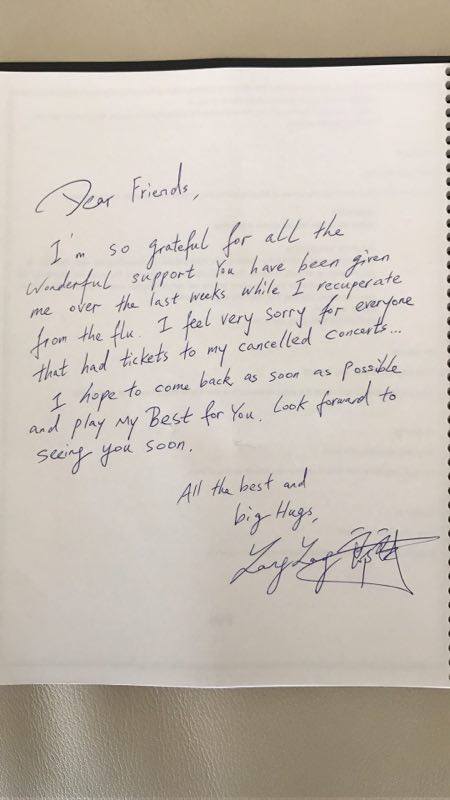 Dear Friends,
I'm so grateful for all the
wonderful support You have been given
me over the last weeks while I recuperate
from the flu. I feel very sorry for everyone
that had tickets to my cancelled concerts...
I hope to come back as soon as possible
and play My Best for You. Look forward to
seeing you soon.
All the best and
big Hugs,
Lang Lang